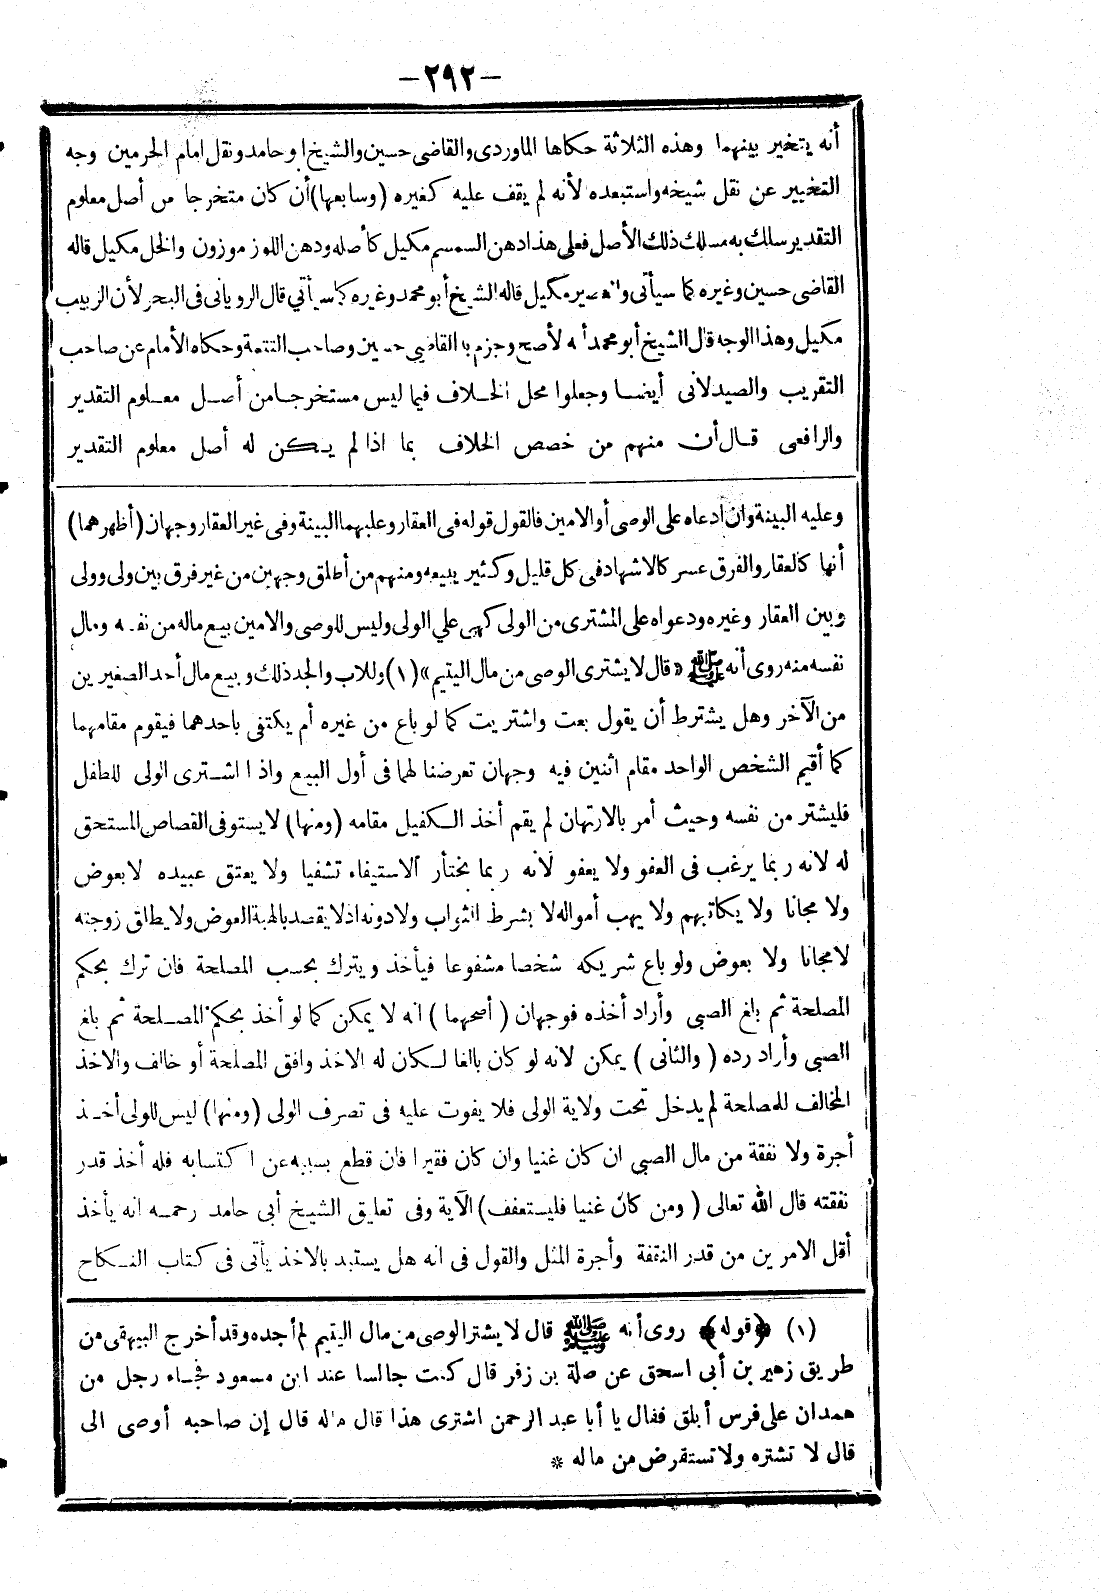 -٢٩٢-
أنه يتخير بينهما وهذه الثلاثة حكاها الماوردى والقاضى حسين والشيخ ابو حامد ونقل امام الحرمين وجه
التخيير عن نقل شيخه واستبعده لأنه لم يقف عليه كغيره (وسابعها) أن كان متخرجا من أصل معلوم
التقدير سلك به مسلك ذلك الأصل فعلى هذا دهن السمسم مكيل كأصله ودهن اللوز موزون والخل مكيل قاله
القاضى حسين وغيره كما سيأتى والعصير مكيل قاله الشيخ أبو محمد وغيره كما سيأتي قال الرويانى فى البحر لأن الزبيب
مكيل وهذا الوجه قال الشيخ أبو محمد أنه لأصح وجزم به القاضي حسين وصاحب التتمة وحكاه الأمام عن صاحب
التقريب والصيدلانى أيضا وجعلوا محل الخلاف فيما ليس مستخرجا من أصل معلوم التقدير
والرافعى قال أن منهم من خصص الخلاف بما اذا لم يكن له أصل معلوم التقدير
وعليه البينة وان ادعاه على الوصى أو الامين فالقول قوله فى العقار وعليهما البينة وفى غير العقار وجهان (أظهرهما)
أنها كالعقار والفرق عسر كالاشهاد فى كل قليل وكثير يبيعه ومنهم من أطلق وجهين من غير فرق بين ولى وولى
وبين العقار وغيره ودعواه على المشترى من الولى كهى علي الولى وليس للوصى والامين بيع ماله من نفسه ومال
نفسه منه روى أنه ﷺ «قال لا يشترى الوصى من مال اليتيم» (١) وللاب والجد ذلك وبيع مال أحد الصغيرين
من الآخر وهل يشترط أن يقول بعت واشتريت كما لو باع من غيره أم يكتفى باحدهما فيقوم مقامهما
كما أقيم الشخص الواحد مقام اثنين فيه وجهان تعرضنا لهما فى أول البيع واذا اشترى الولى للطفل
فليشتر من نفسه وحيث أمر بالارتهان لم يقم أخذ الكفيل مقامه (ومنها) لا يستوفى القصاص المستحق
له لانه ربما يرغب فى العفو ولا يعفو لانه ربما يختار الاستيفاء تشفيا ولا يعتق عبيده لا بعوض
ولا مجانا ولا يكاتبهم ولا يهب أمواله لا بشرط الثواب ولا دونه اذ لا يقصد بالهبة العوض ولا يطلق زوجته
لا مجانا ولا بعوض ولو باع شريكه شخصا مشفوعا فيأخذ ويترك بحسب المصلحة فان ترك بحكم
المصلحة ثم بلغ الصبى وأراد أخذه فوجهان (أصحهما) انه لا يمكن كما لو أخذ بحكم المصلحة ثم بلغ
الصبى وأراد رده (والثانى) يمكن لانه لو كان بالغا لكان له الاخذ وافق المصلحة أو خالف والاخذ
المخالف للمصلحة لم يدخل تحت ولاية الولى فلا يفوت عليه فى تصرف الولى (ومنها) ليس للولى أخذ
أجرة ولا نفقة من مال الصبى ان كان غنيا وان كان فقيرا فان قطع بسببه عن اكتسابه فله أخذ قدر
نفقته قال الله تعالى (ومن كان غنيا فليستعفف) الآية وفى تعليق الشيخ أبى حامد رحمه انه يأخذ
أقل الامرين من قدر النفقة وأجرة المثل والقول فى انه هل يستبد بالاخذ يأتى فى كتاب النكاح
(١) ﴿قوله﴾ روى أنه ﷺ قال لا يشتر الوصى من مال اليتيم لم أجده وقد أخرج البيهقى من
طريق زهير بن أبى اسحق عن صلة بن زفر قال كنت جالسا عند ابن مسعود فجاء رجل من
همدان على فرس أبلق فقال يا أبا عبد الرحمن اشترى هذا قال ماله قال إن صاحبه أوصى الى
قال لا تشتره ولا تستقرض من ماله *